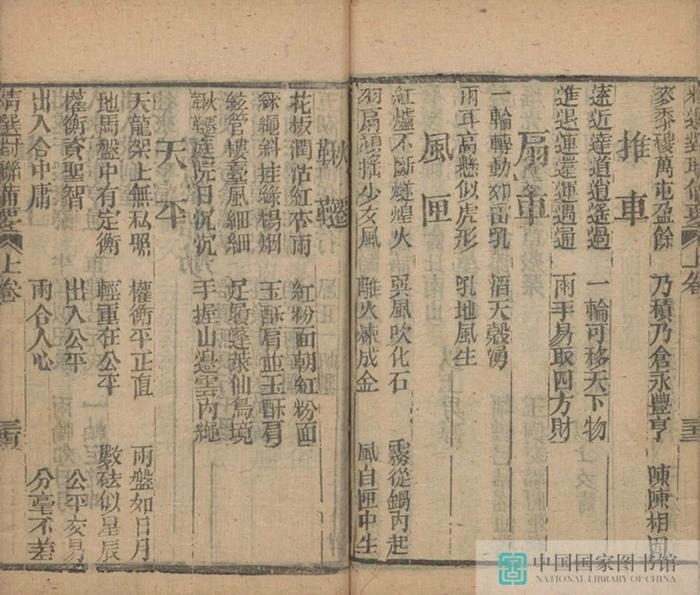 麥黍穫萬屯盈餘 乃積乃倉永豐亨 陳陳相因
推車
遠近達道逍遙過 一輪可移天下物
進退連還運遇通 兩手易取四方財
扇車
一輪轉動如雷乳 滔天殼湧
兩耳高懸似虎形 乳地風生
風匣
紅爐不斷燧煌火 巽風吹化石 霧從鍋內起
羽扇頻搖少女風 離火煉成金 風自匣中生
鞦韆
花板潤沾紅杏雨 紅粉面朝紅粉面
綵繩斜挂綠楊烟 玉酥肩並玉酥肩
絃管樓臺風細細 足履蓬萊仙島境
鞦韆庭院日沉沉 手握山邊雲內繩
天平
天龍架上無私照 權衡平正直 兩盤如日月
地馬盤中有定衡 輕重在公平 數砝似星辰
權衡資聖智 出入公平 公平交易
出入合中庸 兩合人心 分毫不差
精選對聯備要 上卷 三五
中国国家图书馆
NATIONAL LIBRARY OF CHINA